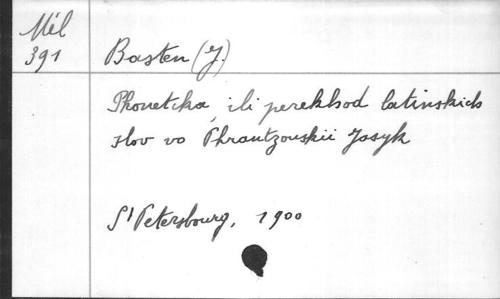 Mél
391
Basten (J.)
Phonetcka, ili perekhod latinskich
slov vo Phrantzouskii Jasyk
St Petersbourg, 1900